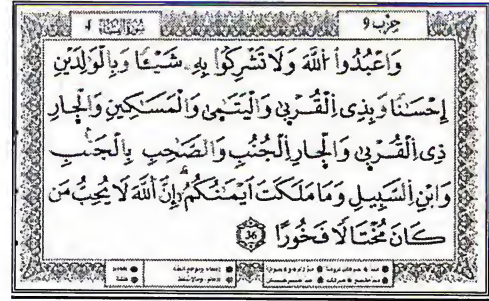 سُورَةُ النِّسَاءِ 4 حِزْب 9
وَاعْبُدُوا اللَّهَ وَلَا تُشْرِكُوا بِهِ شَيْـًٔا وَبِالْوَٰلِدَيْنِ
إِحْسَٰنًا وَبِذِى الْقُرْبَىٰ وَالْيَتَٰمَىٰ وَالْمَسَٰكِينِ وَالْجَارِ
ذِى الْقُرْبَىٰ وَالْجَارِ الْجُنُبِ وَالصَّاحِبِ بِالْجَنۢبِ
وَابْنِ السَّبِيلِ وَمَا مَلَكَتْ أَيْمَٰنُكُمْ إِنَّ اللَّهَ لَا يُحِبُّ مَن
كَانَ مُخْتَالًا فَخُورًا 36